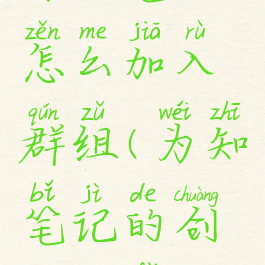 zěn me jiā rù
怎么加入
qún zǔ wéi zhī
群组(为知
bǐ jì de chuàng
笔记的创